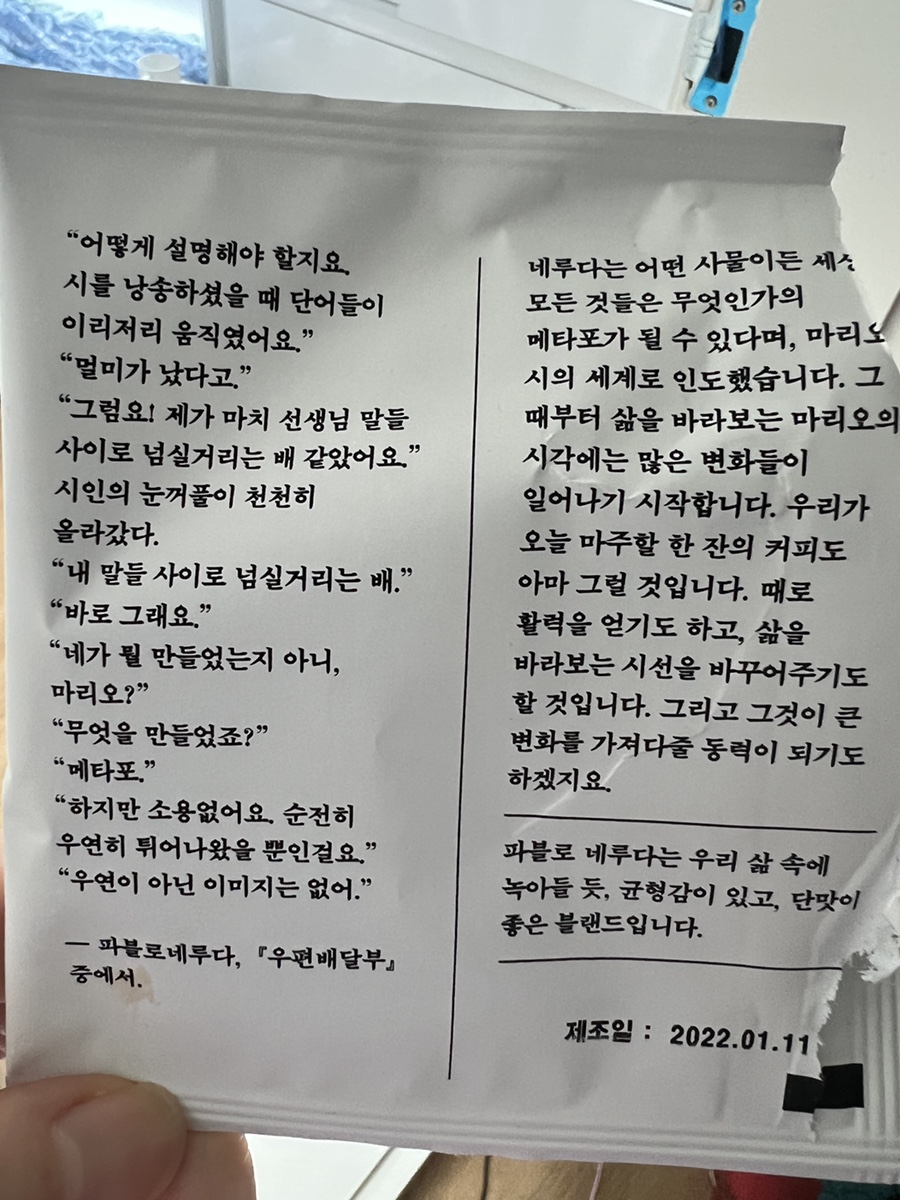 “어떻게 설명해야 할지요.
시를 낭송하셨을 때 단어들이
이리저리 움직였어요.”
“멀미가 났다고.”
“그럼요! 제가 마치 선생님 말들
사이로 넘실거리는 배 같았어요.”
시인의 눈꺼풀이 천천히
올라갔다.
“내 말들 사이로 넘실거리는 배.”
“바로 그래요.”
“네가 뭘 만들었는지 아니,
마리오?”
“무엇을 만들었죠?”
“메타포.”
“하지만 소용없어요. 순전히
우연히 튀어나왔을 뿐인걸요.”
“우연이 아닌 이미지는 없어.”
— 파블로네루다, 『우편배달부』
중에서.
네루다는 어떤 사물이든
모든 것들은 무엇인가의
메타포가 될 수 있다며,
시의 세계로 인도했습니다. 그
때부터 삶을 바라보는 마리오의
시각에는 많은 변화들이
일어나기 시작합니다. 우리가
오늘 마주할 한 잔의 커피도
아마 그럴 것입니다. 때로
활력을 얻기도 하고, 삶을
바라보는 시선을 바꾸어주기도
할 것입니다. 그리고 그것이 큰
변화를 가져다줄 동력이 되기도
하겠지요.
파블로 네루다는 우리 삶 속에
녹아들 듯, 균형감이 있고, 단맛이
좋은 블랜드입니다.
제조일 : 2022.01.11